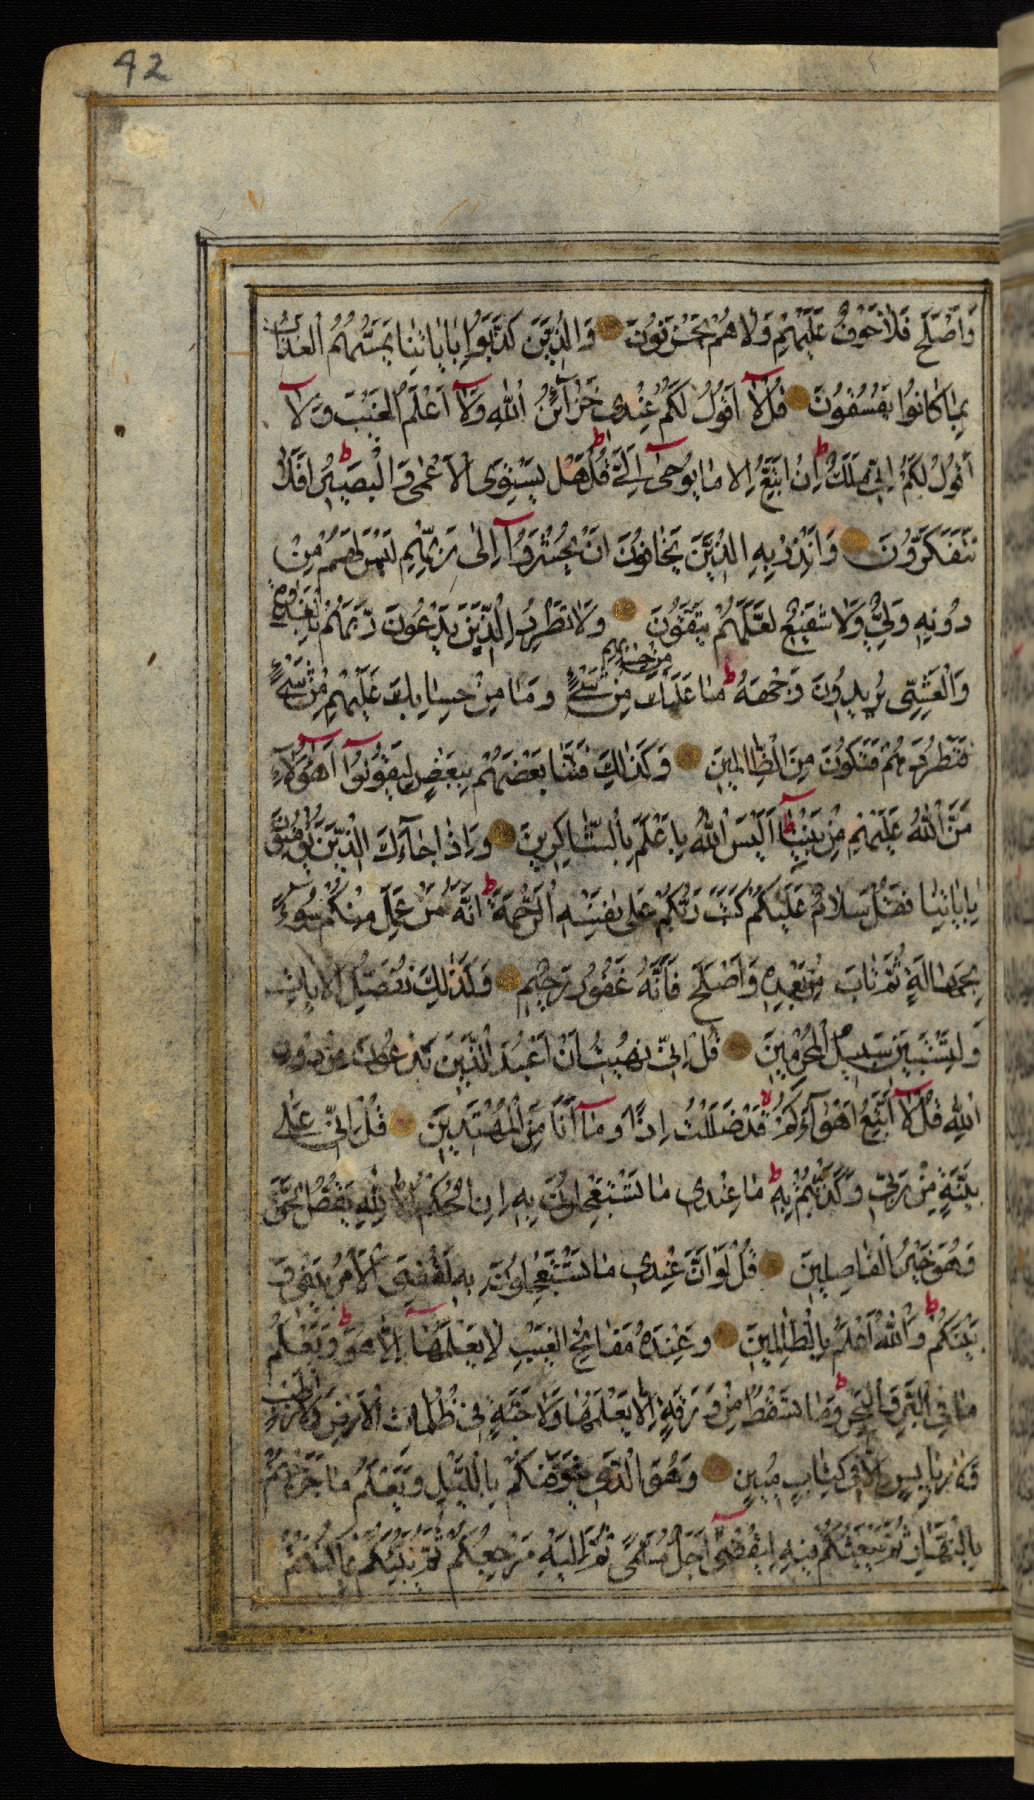 42
وَاَصْلَحَ فَلَا خَوْفٌ عَلَيْهِمْ وَلَا هُمْ يَحْزَنُونَ وَالَّذِينَ كَذَّبُوا بِاٰيَاتِنَا يَمَسُّهُمُ الْعَذَابُ
بِمَا كَانُوا يَفْسُقُونَ قُلْ لَآ اَقُولُ لَكُمْ عِنْدِى خَزَآئِنُ اللهِ وَلَآ اَعْلَمُ الْغَيْبَ وَلَآ
اَقُولُ لَكُمْ اِنِّى مَلَكٌ ط اِنْ اَتَّبِعُ اِلَّا مَا يُوحٰىٓ اِلَىَّ ط قُلْ هَلْ يَسْتَوِى الْاَعْمٰى وَالْبَصِيرُ ط اَفَلَا
تَتَفَكَّرُونَ وَاَنْذِرْ بِهِ الَّذِينَ يَخَافُونَ اَنْ يُحْشَرُوٓا اِلٰى رَبِّهِمْ لَيْسَ لَهُمْ مِنْ
دُونِهِ وَلِىٌّ وَلَا شَفِيعٌ لَعَلَّهُمْ يَتَّقُونَ وَلَا تَطْرُدِ الَّذِينَ يَدْعُونَ رَبَّهُمْ بِالْغَدٰوةِ
وَالْعَشِىِّ يُرِيدُونَ وَجْهَهُ ط مَا عَلَيْكَ مِنْ حِسَابِهِمْ مِنْ شَىْءٍ وَمَا مِنْ حِسَابِكَ عَلَيْهِمْ مِنْ شَىْءٍ
فَتَطْرُدَهُمْ فَتَكُونَ مِنَ الظَّالِمِينَ وَكَذٰلِكَ فَتَنَّا بَعْضَهُمْ بِبَعْضٍ لِيَقُولُوٓا اَهٰٓؤُلَآءِ
مَنَّ اللهُ عَلَيْهِمْ مِنْ بَيْنِنَا ط اَلَيْسَ اللهُ بِاَعْلَمَ بِالشَّاكِرِينَ وَاِذَا جَآءَكَ الَّذِينَ يُؤْمِنُونَ
بِاٰيَاتِنَا فَقُلْ سَلَامٌ عَلَيْكُمْ كَتَبَ رَبُّكُمْ عَلٰى نَفْسِهِ الرَّحْمَةَ ط اَنَّهُ مَنْ عَمِلَ مِنْكُمْ سُوٓءًا
بِجَهَالَةٍ ثُمَّ تَابَ مِنْ بَعْدِهِ وَاَصْلَحَ فَاَنَّهُ غَفُورٌ رَحِيمٌ وَكَذٰلِكَ نُفَصِّلُ الْاٰيَاتِ
وَلِتَسْتَبِينَ سَبِيلُ الْمُجْرِمِينَ قُلْ اِنِّى نُهِيتُ اَنْ اَعْبُدَ الَّذِينَ تَدْعُونَ مِنْ دُونِ
اللهِ قُلْ لَآ اَتَّبِعُ اَهْوَآءَكُمْ لا قَدْ ضَلَلْتُ اِذًا وَمَآ اَنَا مِنَ الْمُهْتَدِينَ قُلْ اِنِّى عَلٰى
بَيِّنَةٍ مِنْ رَبِّى وَكَذَّبْتُمْ بِهِ ط مَا عِنْدِى مَا تَسْتَعْجِلُونَ بِهِ اِنِ الْحُكْمُ اِلَّا لِلهِ يَقُصُّ الْحَقَّ
وَهُوَ خَيْرُ الْفَاصِلِينَ قُلْ لَوْ اَنَّ عِنْدِى مَا تَسْتَعْجِلُونَ بِهِ لَقُضِىَ الْاَمْرُ بَيْنِى وَ
بَيْنَكُمْ ط وَاللهُ اَعْلَمُ بِالظَّالِمِينَ وَعِنْدَهُ مَفَاتِحُ الْغَيْبِ لَا يَعْلَمُهَآ اِلَّا هُوَ ط وَيَعْلَمُ
مَا فِى الْبَرِّ وَالْبَحْرِ ط وَمَا تَسْقُطُ مِنْ وَرَقَةٍ اِلَّا يَعْلَمُهَا وَلَا حَبَّةٍ فِى ظُلُمَاتِ الْاَرْضِ وَلَا رَطْبٍ
وَلَا يَابِسٍ اِلَّا فِى كِتَابٍ مُبِينٍ وَهُوَ الَّذِى يَتَوَفّٰىكُمْ بِاللَّيْلِ وَيَعْلَمُ مَا جَرَحْتُمْ
بِالنَّهَارِ ثُمَّ يَبْعَثُكُمْ فِيهِ لِيُقْضٰىٓ اَجَلٌ مُسَمًّى ثُمَّ اِلَيْهِ مَرْجِعُكُمْ ثُمَّ يُنَبِّئُكُمْ بِمَا كُنْتُمْ